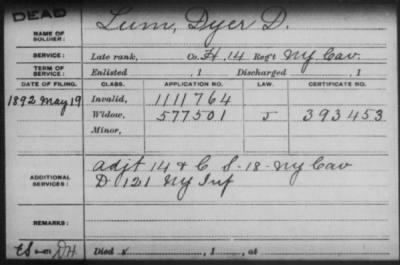 DEAD
NAME OF SOLDIER: Lum, Dyer D.
SERVICE: Late rank, Co. H, 14 Reg't Ny Cav.
TERM OF SERVICE: Enlisted , 1 Discharged , 1
DATE OF FILING. CLASS. APPLICATION NO. LAW. CERTIFICATE NO.
1892 May 19 Invalid, 1111764
Widow, 577501 J 393453
Minor,
ADDITIONAL SERVICES: Adjt 14 & C S - 18 - Ny Cav
D 121 Ny Inf
REMARKS:
Died , 1 , at